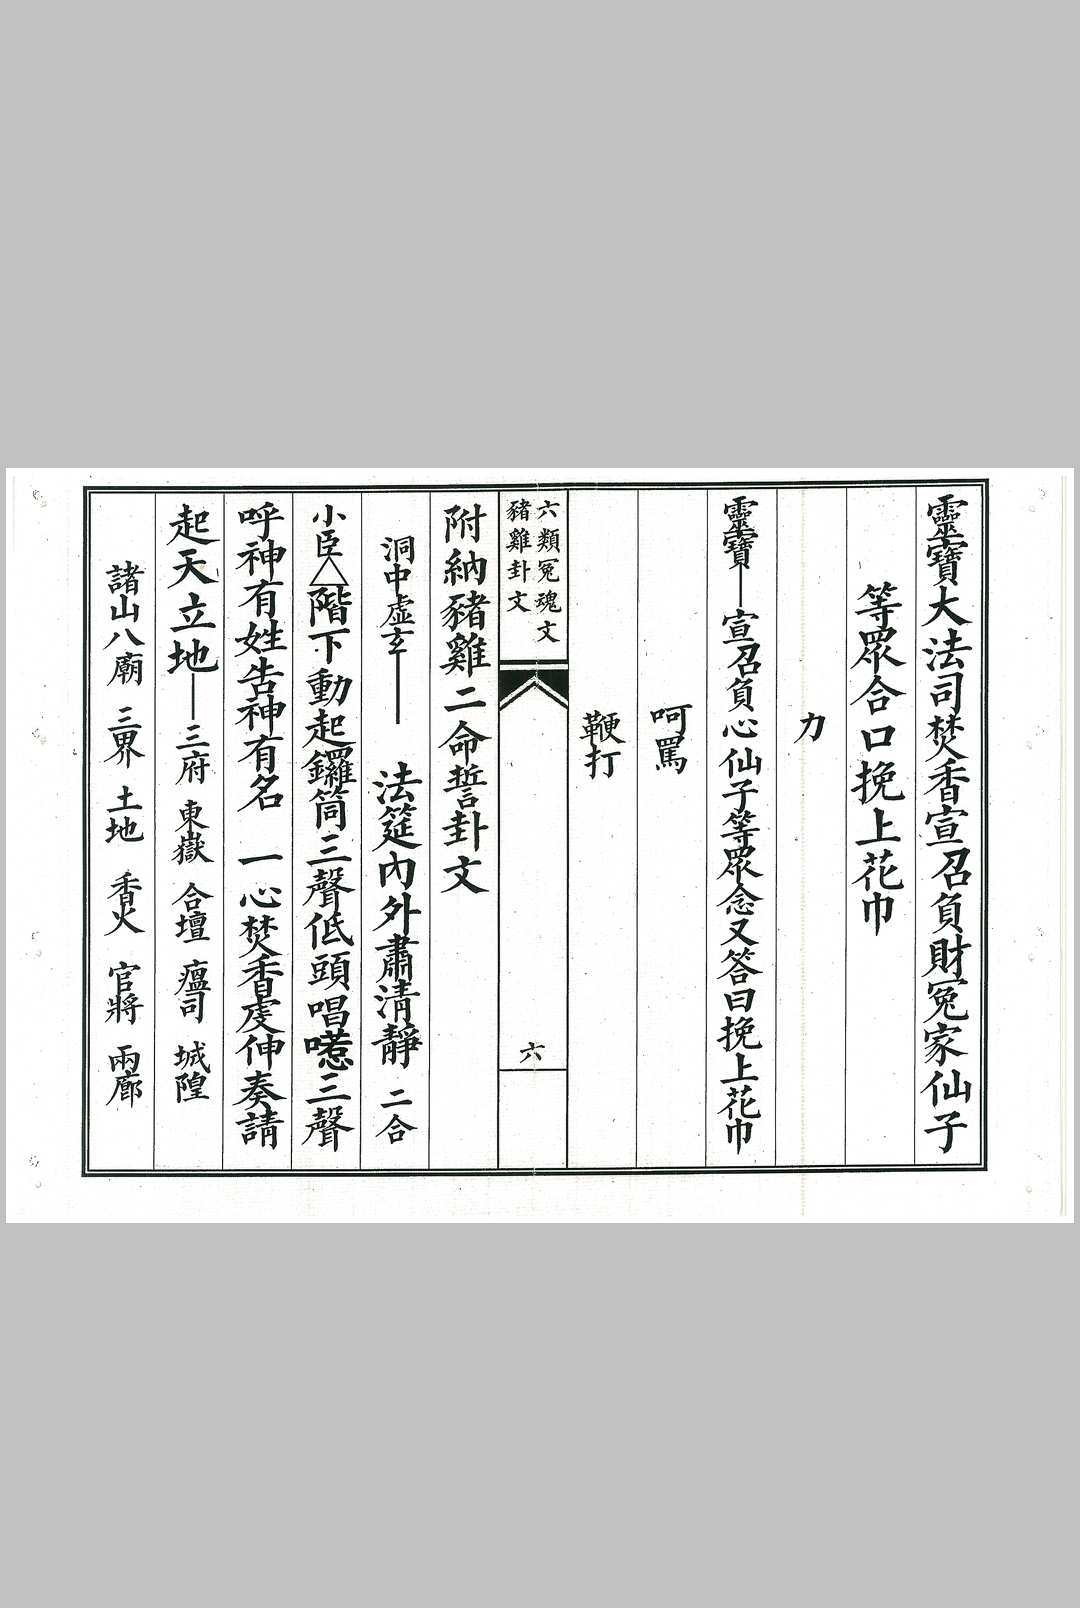 靈寶大法司焚香宣召負財冤家仙子
等眾合口挽上花巾
力
靈寶——宣召負心仙子等眾念又答曰挽上花巾
呵罵
鞭打
六類冤魂文
豬雞卦文
六
附納豬雞二命誓卦文
洞中虛玄—— 法筵內外肅清靜 二合
小臣△階下動起鑼筒三聲低頭唱喏三聲
呼神有姓告神有名 一心焚香虔伸奏請
起天立地——三府 東嶽 合壇 瘟司 城隍
諸山八廟 三界 土地 香火 官將 兩廊